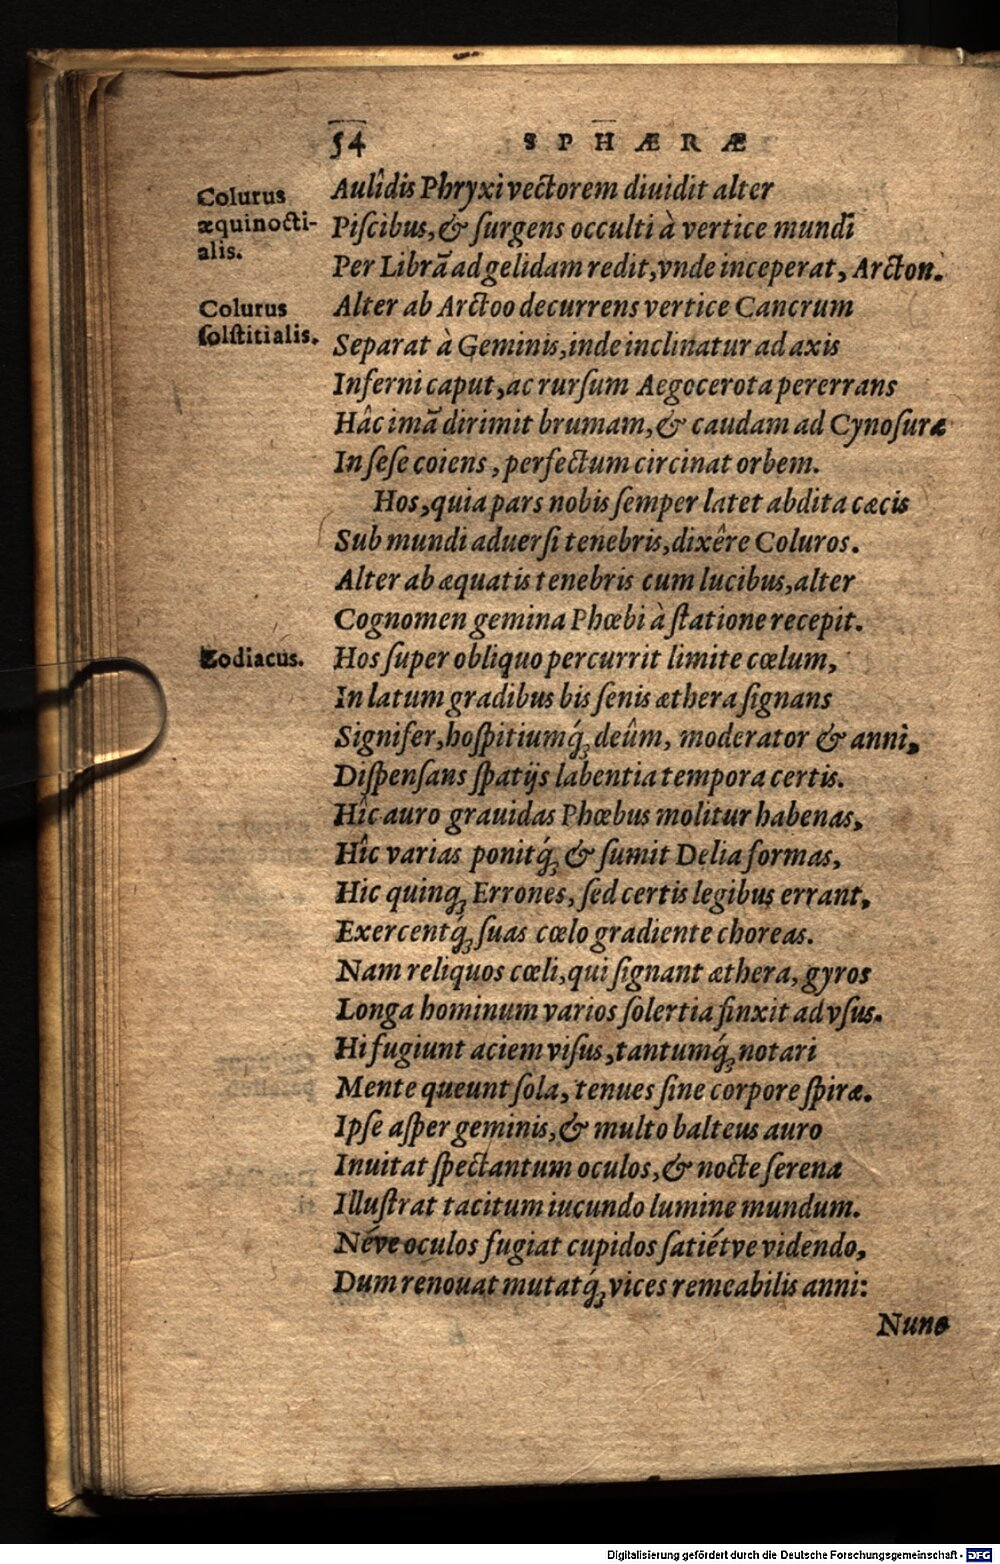 54 SPHÆRÆ
Colurus
æquinocti-
alis.
Aulîdis Phryxi vectorem diuidit alter
Piſcibus, & ſurgens occulti à vertice mundi
Per Librā ad gelidam redit, vnde inceperat, Arcton.
Colurus
ſolſtitialis.
Alter ab Arctoo decurrens vertice Cancrum
Separat à Geminis, inde inclinatur ad axis
Inferni caput, ac rurſum Aegocerota pererrans
Hâc imā dirimit brumam, & caudam ad Cynoſuræ
In ſeſe coiens, perfectum circinat orbem.
Hos, quia pars nobis ſemper latet abdita cæcis
Sub mundi aduerſi tenebris, dixêre Coluros.
Alter ab æquatis tenebris cum lucibus, alter
Cognomen gemina Phœbi à ſtatione recepit.
Zodiacus.
Hos ſuper obliquo percurrit limite cœlum,
In latum gradibus bis ſenis æthera ſignans
Signifer, hoſpitiumq́; deûm, moderator & anni,
Diſpenſans ſpatijs labentia tempora certis.
Hîc auro grauidas Phœbus molitur habenas,
Hîc varias ponitq́; & ſumit Delia formas,
Hic quinq; Errones, ſed certis legibus errant,
Exercentq́; ſuas cœlo gradiente choreas.
Nam reliquos cœli, qui ſignant æthera, gyros
Longa hominum varios ſolertia finxit ad vſus.
Hi fugiunt aciem viſus, tantumq́; notari
Mente queunt ſola, tenues ſine corpore ſpiræ.
Ipſe aſper geminis, & multo balteus auro
Inuitat ſpectantum oculos, & nocte ſerena
Illuſtrat tacitum iucundo lumine mundum.
Néve oculos fugiat cupidos ſatiétve videndo,
Dum renouat mutatq́; vices remeabilis anni:
Nunc
Digitalisierung gefördert durch die Deutsche Forschungsgemeinschaft - DFG